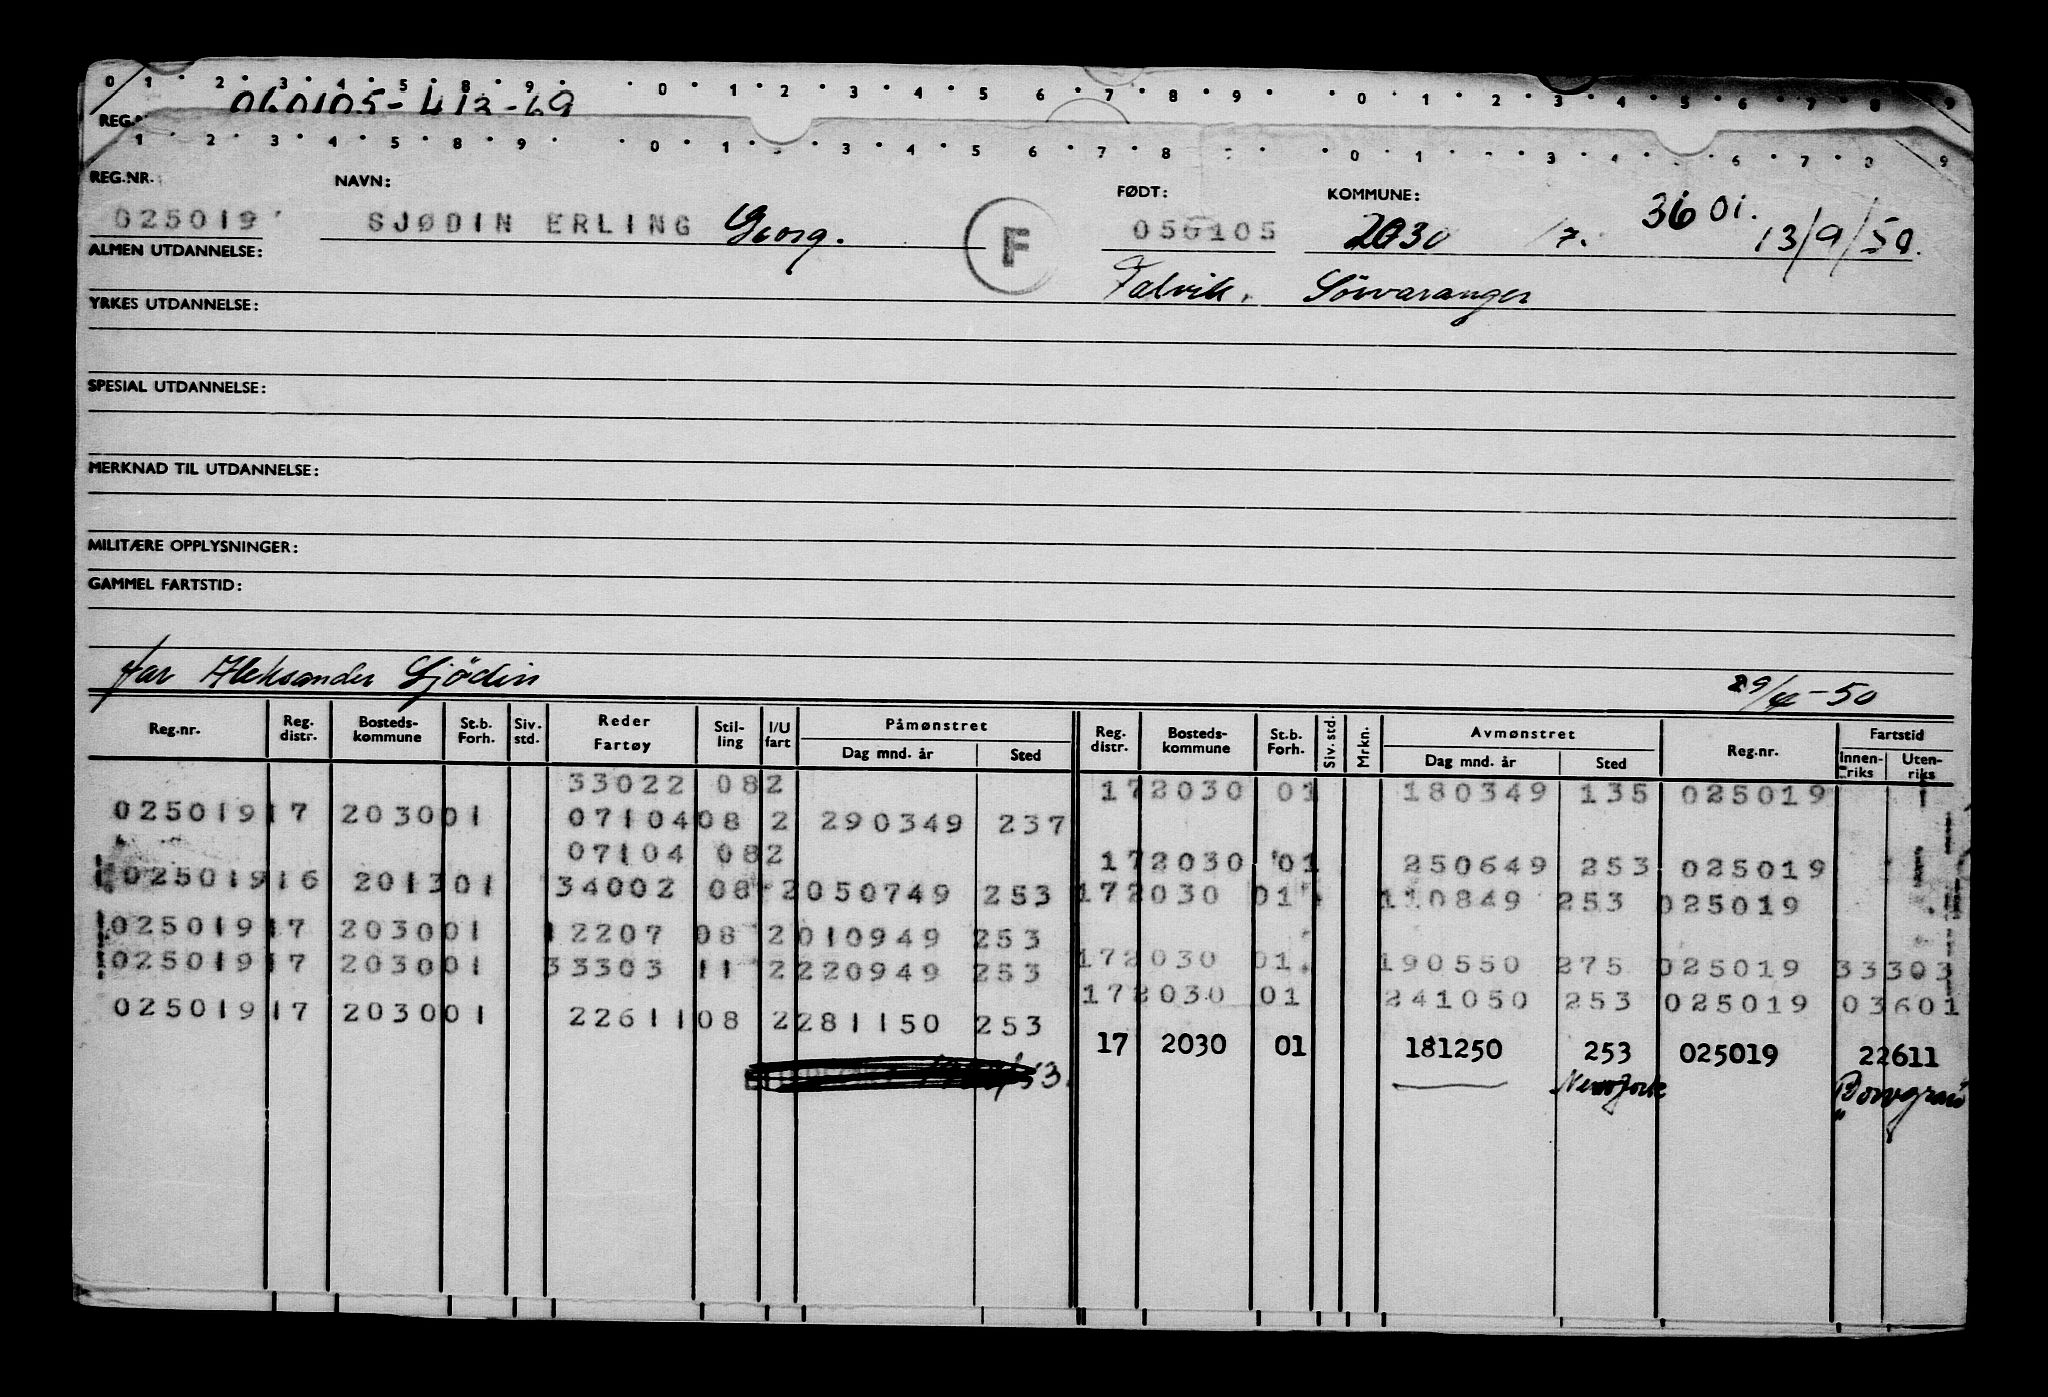 0 1 2 3 4 5 8 9 0 1 2 3 4 5 6 7 8 9 0 1 2 3 4 5 6 7 8 9
REG.N 060105-413-69
1 2 3 4 5 8 9 0 1 3 4 5 6 7 8 0 1 3 4 6 7 8 9
REG.NR. NAVN: FØDT: KOMMUNE:
025019 SJØDIN ERLING Georg. F 050105 2030 7. 3601. 13/9/50.
ALMEN UTDANNELSE: Talvik. Sörvaranger
YRKES UTDANNELSE:
SPESIAL UTDANNELSE:
MERKNAD TIL UTDANNELSE:
MILITÆRE OPPLYSNINGER:
GAMMEL FARTSTID:
far Aleksander Sjødin -50
Reg.nr. Reg. distr. Bosteds-kommune St.b. Forh. Siv. std. Reder Fartøy Stil-ling I/U fart Påmønstret Dag mnd. år Sted Reg. distr. Bosteds-kommune St.b. Forh. Siv. std. Mrkn. Avmønstret Dag mnd. år Sted Reg.nr. Fartstid Innen-riks Uten-riks
33022 082 172030 01 180349 135 025019
025019 17 203001 07104 08 2 290349 237
07104 082 172030 01 250649 253 025019
025019 16 201301 34002 08 2 050749 253 172030 01 110849 253 025019
025019 17 203001 12207 08 2 010949 253
025019 17 203001 33303 11 2 220949 253 172030 01 190550 275 025019 33303
172030 01 241050 253 025019 03601
025019 17 203001 22611 08 2 281150 253
17 2030 01 181250 253 025019 22611
New York